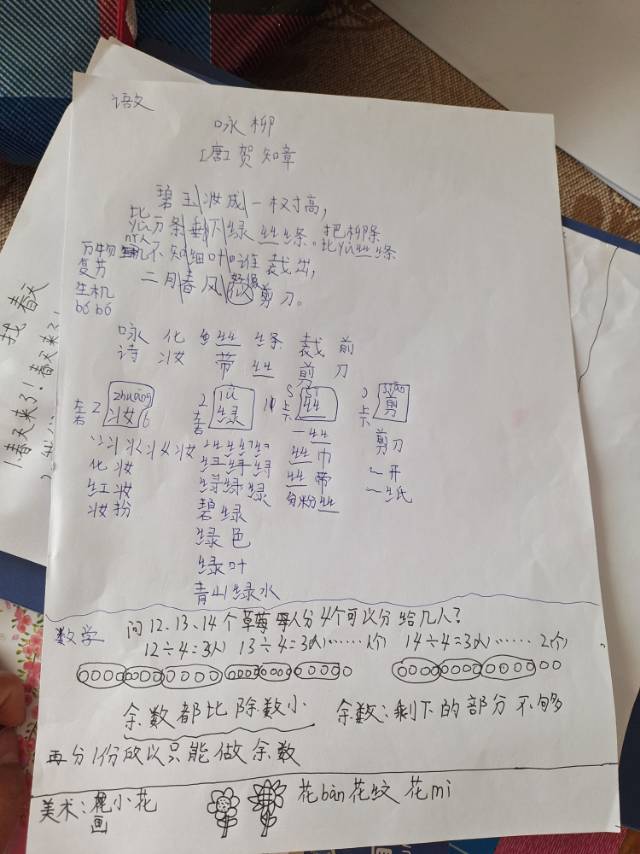 语文
咏柳
[唐] 贺知章
碧玉\妆成\一树高,
万条\垂下\绿丝绦。把柳条
比yù 比yù丝绦
不知\细叶\谁裁出,
万物
复苏
生机
bó bó
二月\春风\似剪刀。
咏 化 丝 绦 裁 剪
诗 妆 带 丝 剪 刀
zhuāng lǜ sī jiǎn
左 2 妆 6 2 绿 丝 剪
化妆
红妆
妆扮
碧绿
绿色
绿叶
青山绿水
一丝
丝巾
丝带
剪刀
~开
~纸
数学 问12、13、14个草莓每人分4个可以分给几人?
12÷4=3(人) 13÷4=3(人)……1(个) 14÷4=3(人)……2(个)
余数都比除数小 余数:剩下的部分不够
再分1份所以只能做余数
美术: 小花 花bàn 花纹 花mì
画
找春天
!春天来了!春天来了!